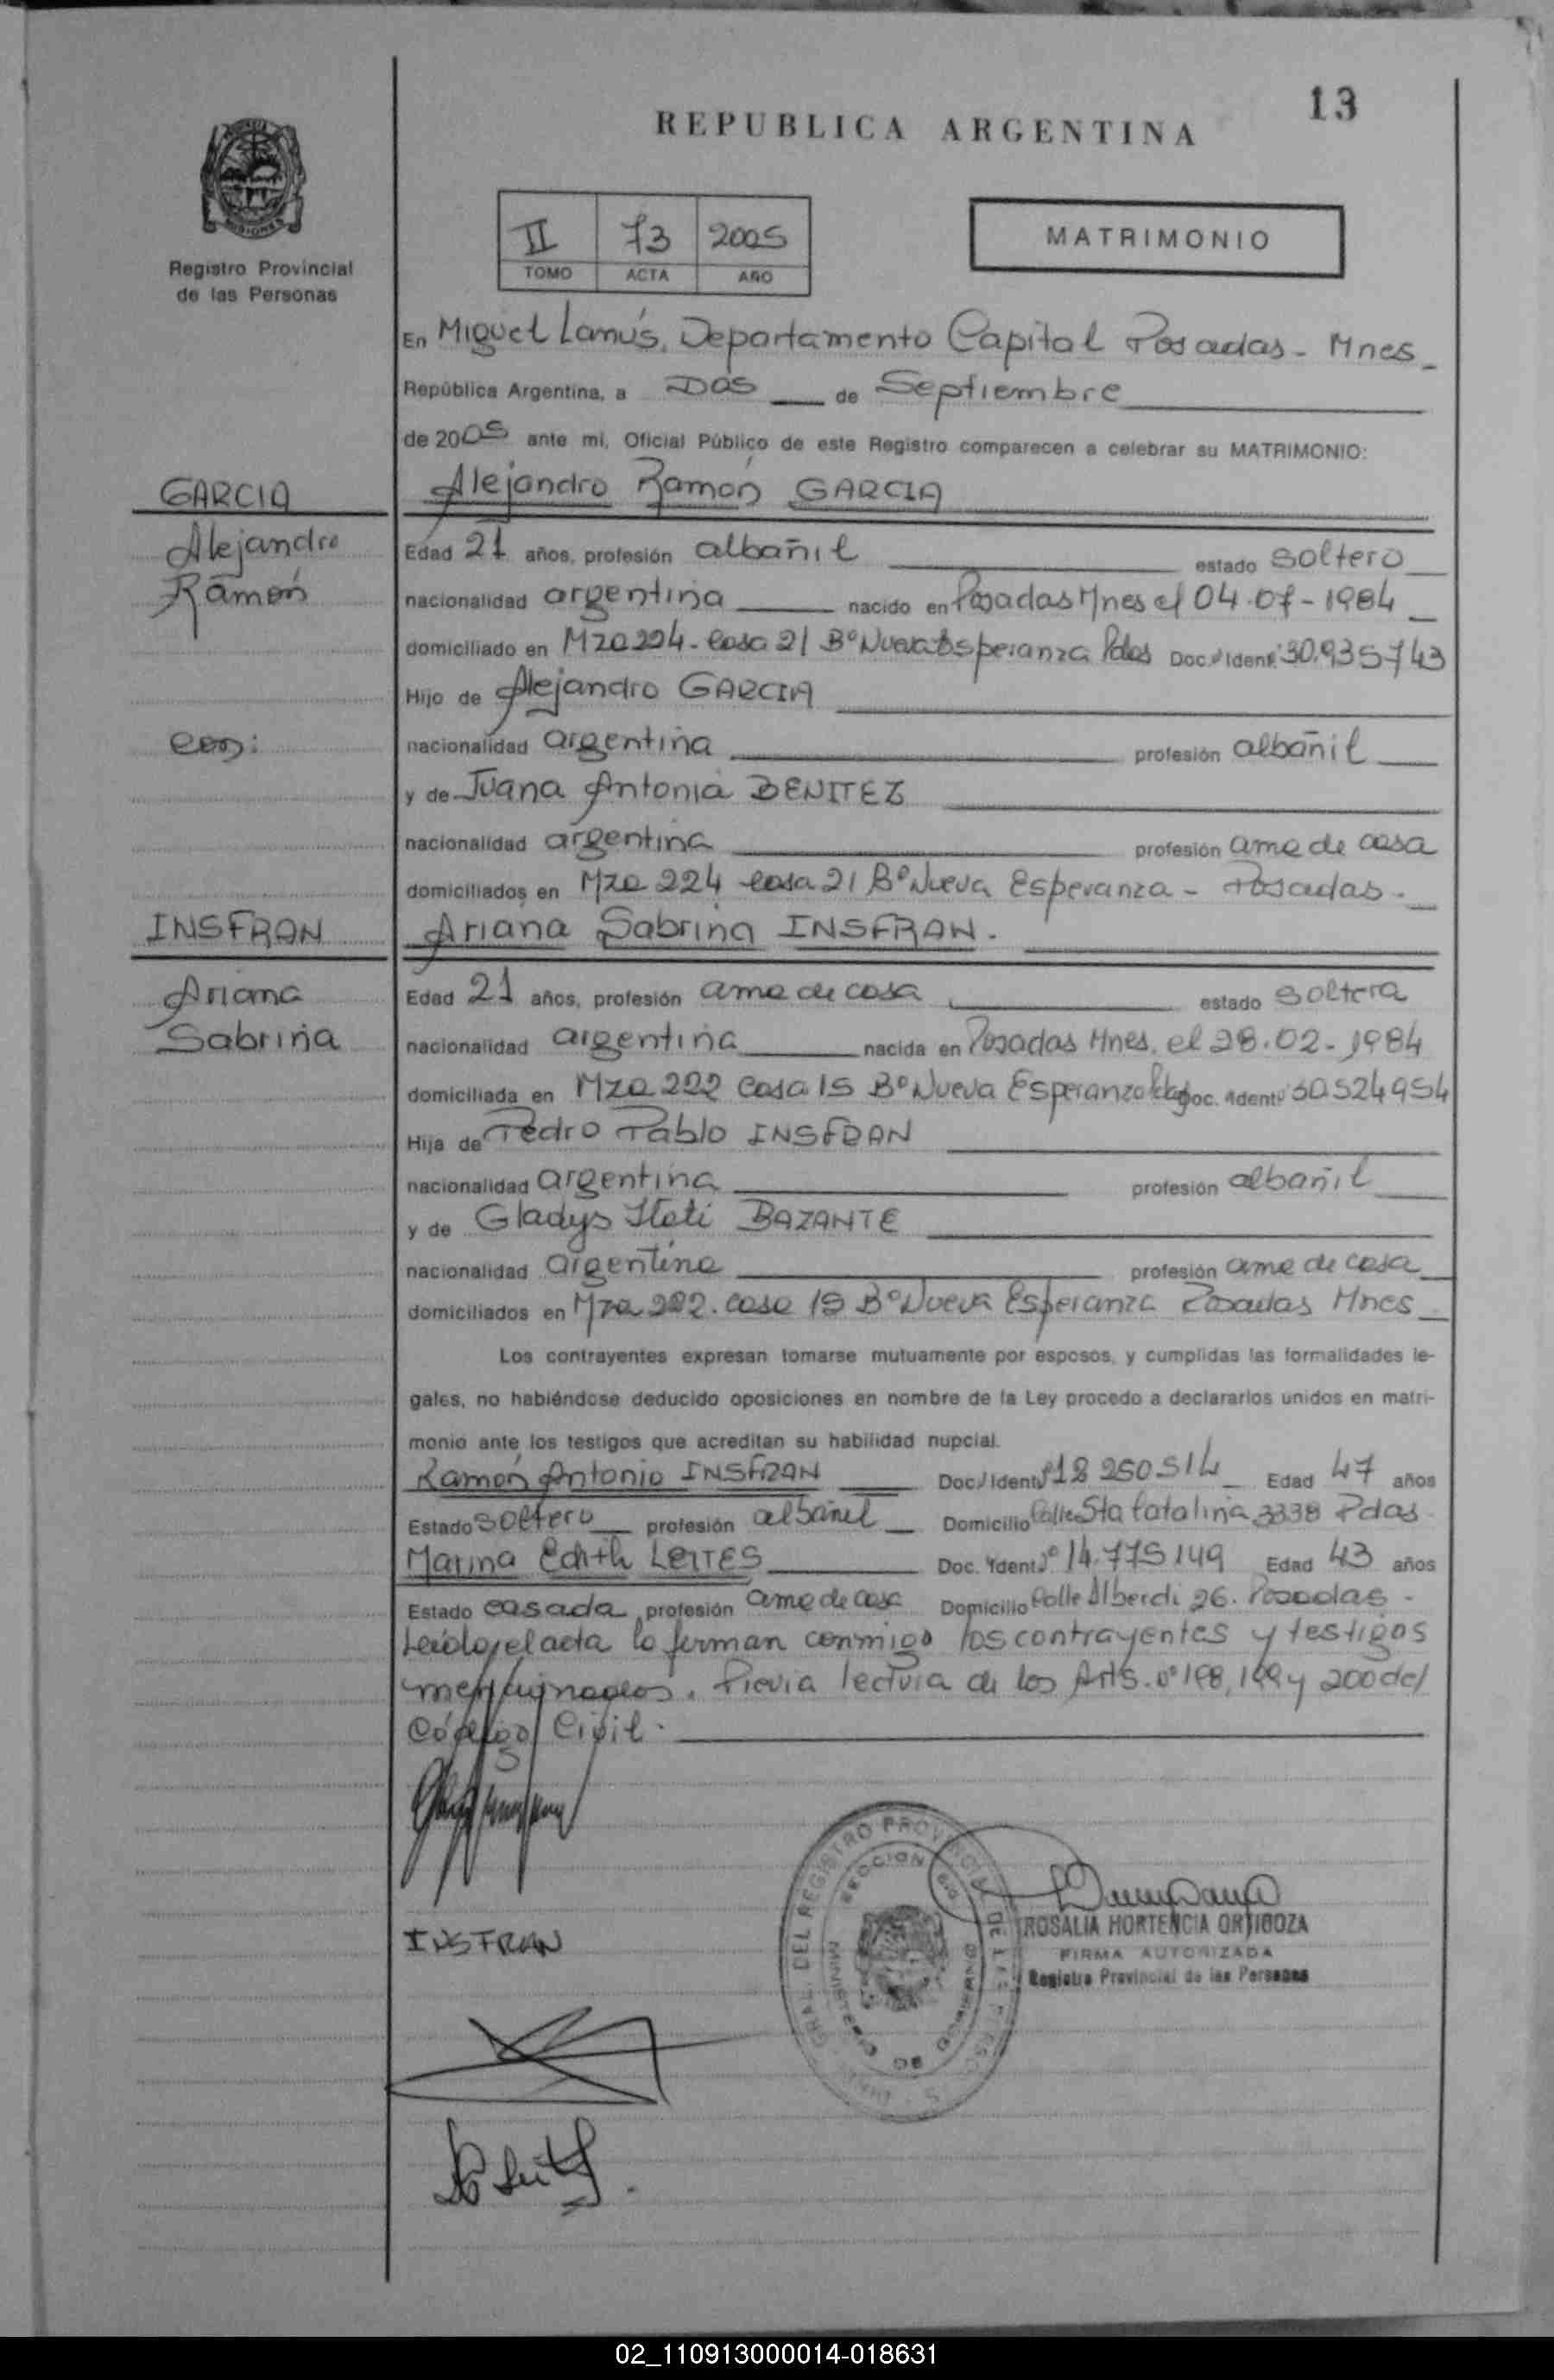 13
REPUBLICA ARGENTINA
II 73 2005
TOMO ACTA AÑO
MATRIMONIO
Registro Provincial
de las Personas
En Miguel Lanús, Departamento Capital Posadas - Mnes
República Argentina, a Dos de Septiembre
de 2005 ante mi, Oficial Público de este Registro comparecen a celebrar su MATRIMONIO:
GARCIA
Alejandro Ramón GARCIA
Alejandro
Ramón
Edad 21 años, profesión albañil estado soltero
nacionalidad argentina nacido en Posadas Mnes el 04-07-1984
domiciliado en Mza 224 - casa 21 Bº Nueva Esperanza Pdas Doc. Ident. 30.935743
Hijo de Alejandro GARCIA
con:
nacionalidad argentina profesión albañil
y de Juana Antonia BENITEZ
nacionalidad argentina profesión ama de casa
domiciliados en Mza 224 casa 21 Bº Nueva Esperanza - Posadas.
INSFRAN
Ariana Sabrina INSFRAN.
Ariana
Sabrina
Edad 21 años, profesión ama de casa estado soltera
nacionalidad argentina nacida en Posadas Mnes, el 28.02-1984
domiciliada en Mza 222 casa 15 Bº Nueva Esperanza Pdas Doc. Ident. 30524954
Hija de Pedro Pablo INSFRAN
nacionalidad argentina profesión albañil
y de Gladys Itati BAZANTE
nacionalidad argentina profesión ama de casa
domiciliados en Mza 222. casa 15 Bº Nueva Esperanza Posadas Mnes
Los contrayentes expresan tomarse mutuamente por esposos, y cumplidas las formalidades le-
gales, no habiéndose deducido oposiciones en nombre de la Ley procedo a declararlos unidos en matri-
monio ante los testigos que acreditan su habilidad nupcial.
Ramón Antonio INSFRAN Doc. Ident. 18 250514 Edad 47 años
Estado soltero profesión albañil Domicilio Calle Sta Catalina 3338 Pdas.
Marina Edith LEITES Doc. Ident. Nº 14.775149 Edad 43 años
Estado casada profesión ama de casa Domicilio Calle Alberdi 26. Posadas -
Leido, el acta lo firman conmigo los contrayentes y testigos
mencionados. Previa lectura de los Arts. nº 198, 199 y 200 del
Código Civil.
INSFRAN
GRAL. DEL REGISTRO PROVINCIAL DE LAS PERSONAS
SECCION
MINISTERIO DE GOBIERNO
ROSALIA HORTENCIA ORTIGOZA
FIRMA AUTORIZADA
Registro Provincial de las Personas
02_110913000014-018631